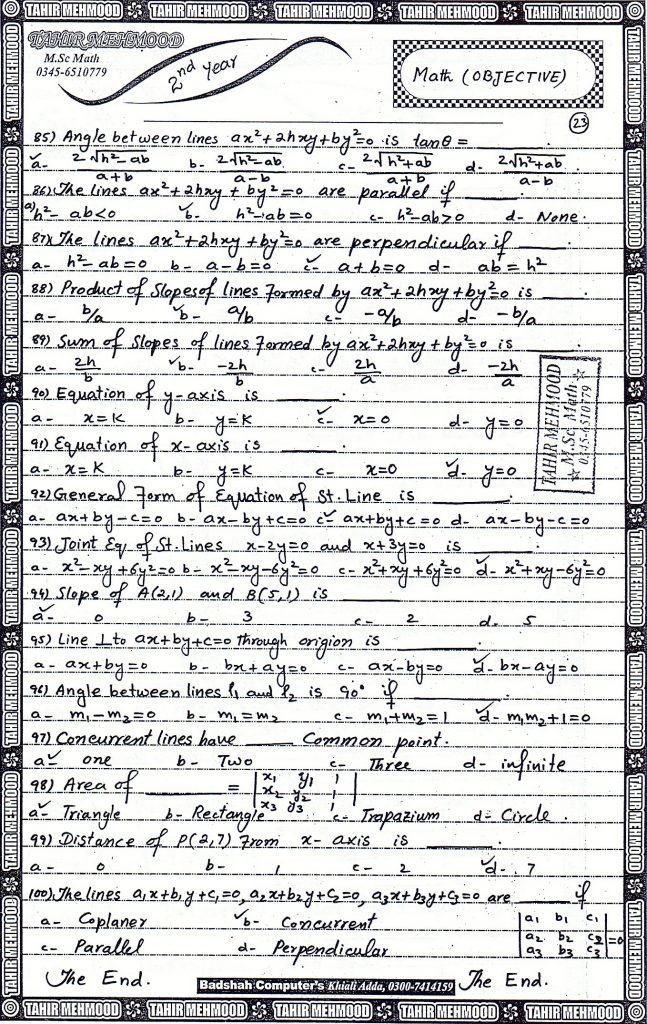 TAHIR MEHMOOD TAHIR MEHMOOD TAHIR MEHMOOD TAHIR MEHMOOD TAHIR MEHMOOD
TAHIR MEHMOOD
M.Sc Math
0345-6510779
2nd year
Math (OBJECTIVE)
23
85) Angle between lines ax²+2hxy+by²=0 is tanθ = ____
✓a- 2√h²-ab/a+b b- 2√h²-ab/a-b c- 2√h²+ab/a+b d- 2√h²+ab/a-b
86) The lines ax²+2hxy+by²=0 are parallel if ____.
a) h²-ab<0 ✓b- h²-ab=0 c- h²-ab>0 d- None.
87) The lines ax²+2hxy+by²=0 are perpendicular if ____.
a- h²-ab=0 b- a-b=0 ✓c- a+b=0 d- ab=h²
88) Product of Slopes of lines Formed by ax²+2hxy+by²=0 is ____.
a- b/a ✓b- a/b c- -a/b d- -b/a
89) Sum of Slopes of lines Formed by ax²+2hxy+by²=0 is ____.
a- 2h/b ✓b- -2h/b c- 2h/a d- -2h/a
90) Equation of y-axis is ____.
a- x=K b- y=K ✓c- x=0 d- y=0
91) Equation of x-axis is ____.
a- x=K b- y=K c- x=0 ✓d- y=0
TAHIR MEHMOOD
M.Sc. Math
0345-6510779
92) General Form of Equation of St. Line is ____.
a- ax+by-c=0 b- ax-by+c=0 ✓c- ax+by+c=0 d- ax-by-c=0
93) Joint Eq of St. Lines x-2y=0 and x+3y=0 is ____.
a- x²-xy+6y²=0 b- x²-xy-6y²=0 c- x²+xy+6y²=0 ✓d- x²+xy-6y²=0
94) Slope of A(2,1) and B(5,1) is ____
✓a- 0 b- 3 c- 2 d- 5
95) Line ⊥ to ax+by+c=0 through origion is ____.
a- ax+by=0 b- bx+ay=0 c- ax-by=0 ✓d- bx-ay=0
96) Angle between lines l₁ and l₂ is 90° if ____.
a- m₁-m₂=0 b- m₁=m₂ c- m₁+m₂=1 ✓d- m₁m₂+1=0
97) Concurrent lines have ____ Common point.
a✓ one b- Two c- Three d- infinite
98) Area of ____ = |x₁ y₁ 1
x₂ y₂ 1
x₃ y₃ 1|
✓a- Triangle b- Rectangle c- Trapazium d- Circle.
99) Distance of P(2,7) From x-axis is ____.
a- 0 b- 1 c- 2 ✓d- 7
100) The lines a₁x+b₁y+c₁=0, a₂x+b₂y+c₂=0, a₃x+b₃y+c₃=0 are ____ if
a- Coplaner ✓b- Concurrent |a₁ b₁ c₁
a₂ b₂ c₂
c- Parallel d- Perpendicular a₃ b₃ c₃|=0
The End. Badshah Computer's Khiali Adda, 0300-7414159 The End.
TAHIR MEHMOOD TAHIR MEHMOOD TAHIR MEHMOOD TAHIR MEHMOOD TAHIR MEHMOOD